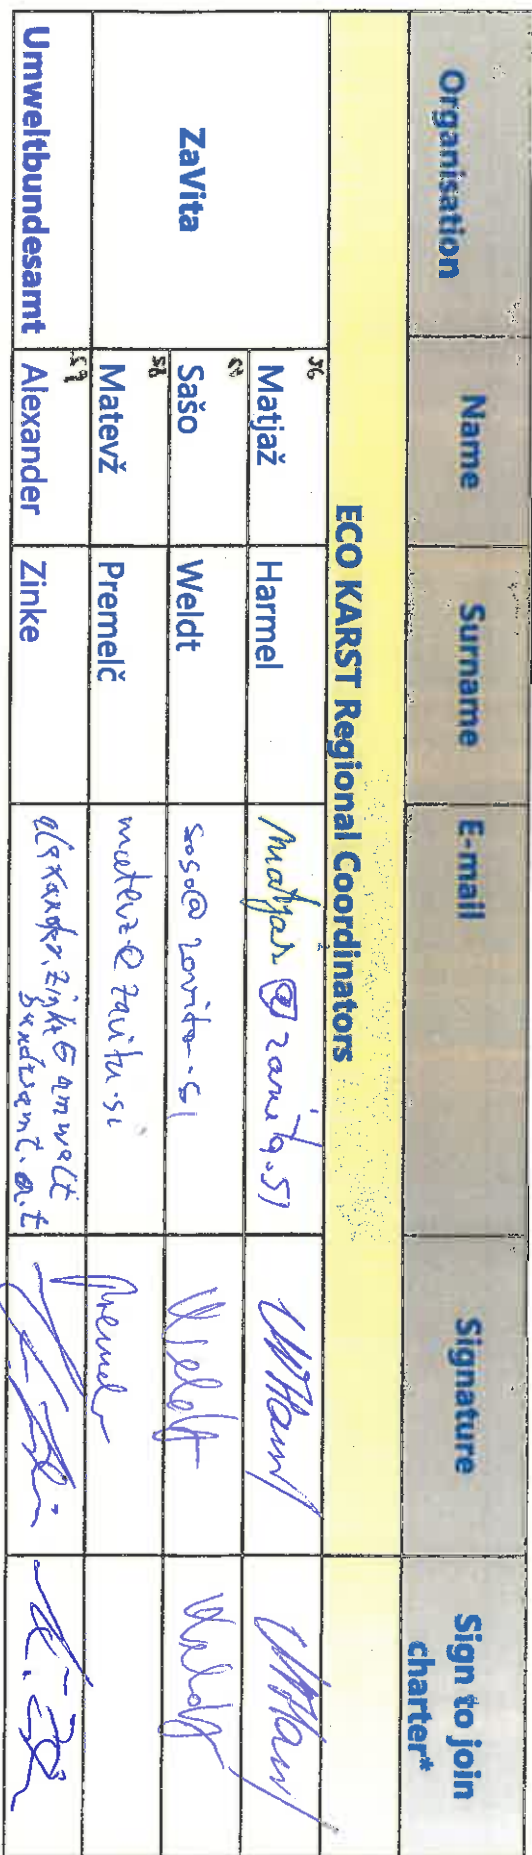 Organisation Name Surname E-mail Signature Sign to join
charter*
ECO KARST Regional Coordinators
ZaVita
56 Matjaž Harmel matjaz@zavita.si
57 Sašo Weldt saso@zavita.si Weldt Weldt
58 Matevž Premelč matevz@zavita.si Premelč
Umweltbundesamt 59 Alexander Zinke alexander.zinke@umwelt
bundesamt.at